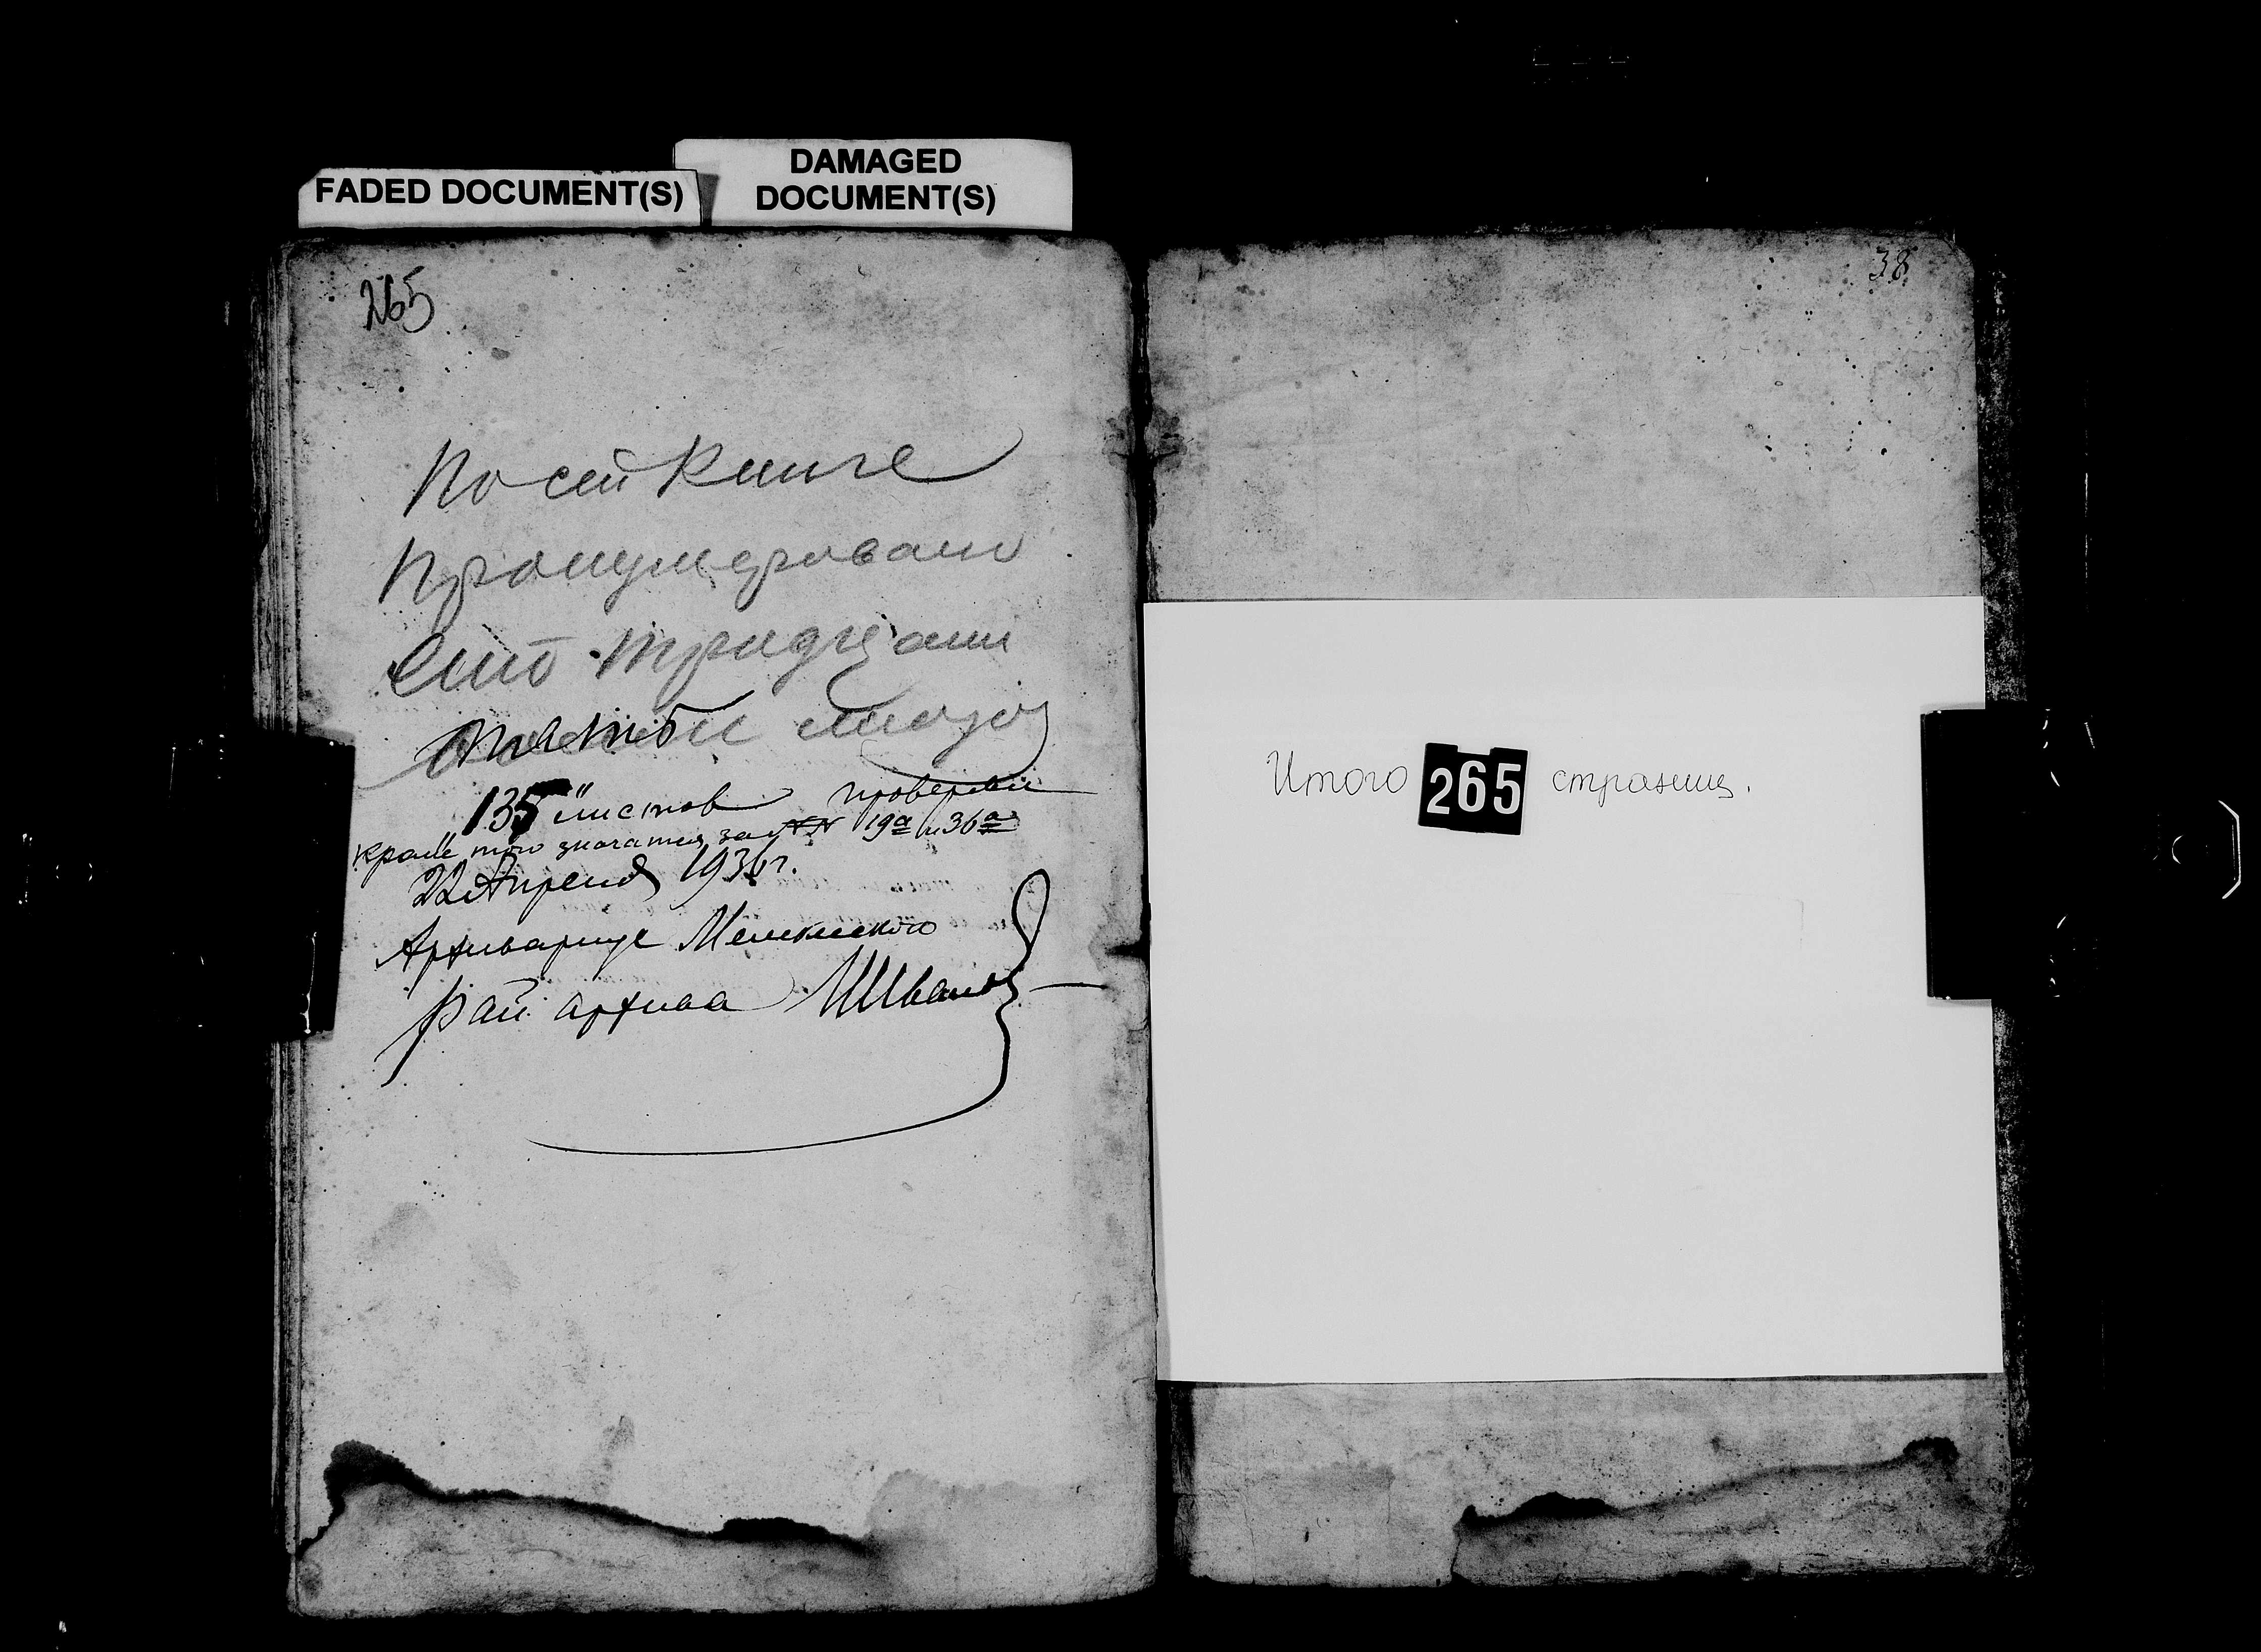 FADED DOCUMENT(S)
DAMAGED
DOCUMENT(S)
265
По сей Книге
Пронумеровано
Сто тридцати
пять
"135" листов проверены
кроме того значатся за NN 19а и 36а
22 Апреля 1936 г.
Архивариус
Рай. архива ИИванов
38
Итого 265 страниц.